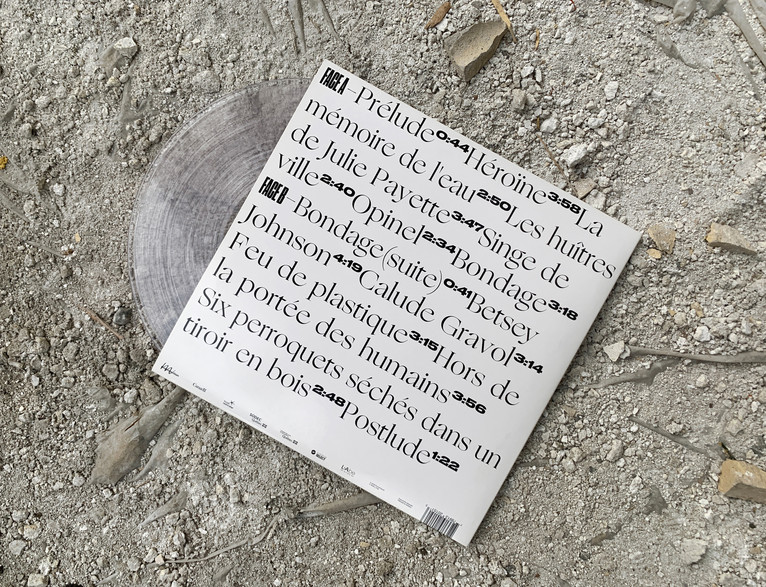 FACE A–Prélude 0:44 Héroïne 3:58 La
mémoire de l'eau 2:50 Les huîtres
de Julie Payette 3:47 Singe de
ville 2:40 Opinel 2:34 Bondage 3:18
FACE B–Bondage (suite) 0:41 Betsey
Johnson 4:19 Calude Gravol 3:14
Feu de plastique 3:15 Hors de
la portée des humains 3:56
Six perroquets séchés dans un
tiroir en bois 2:48 Postlude 1:22
Canada